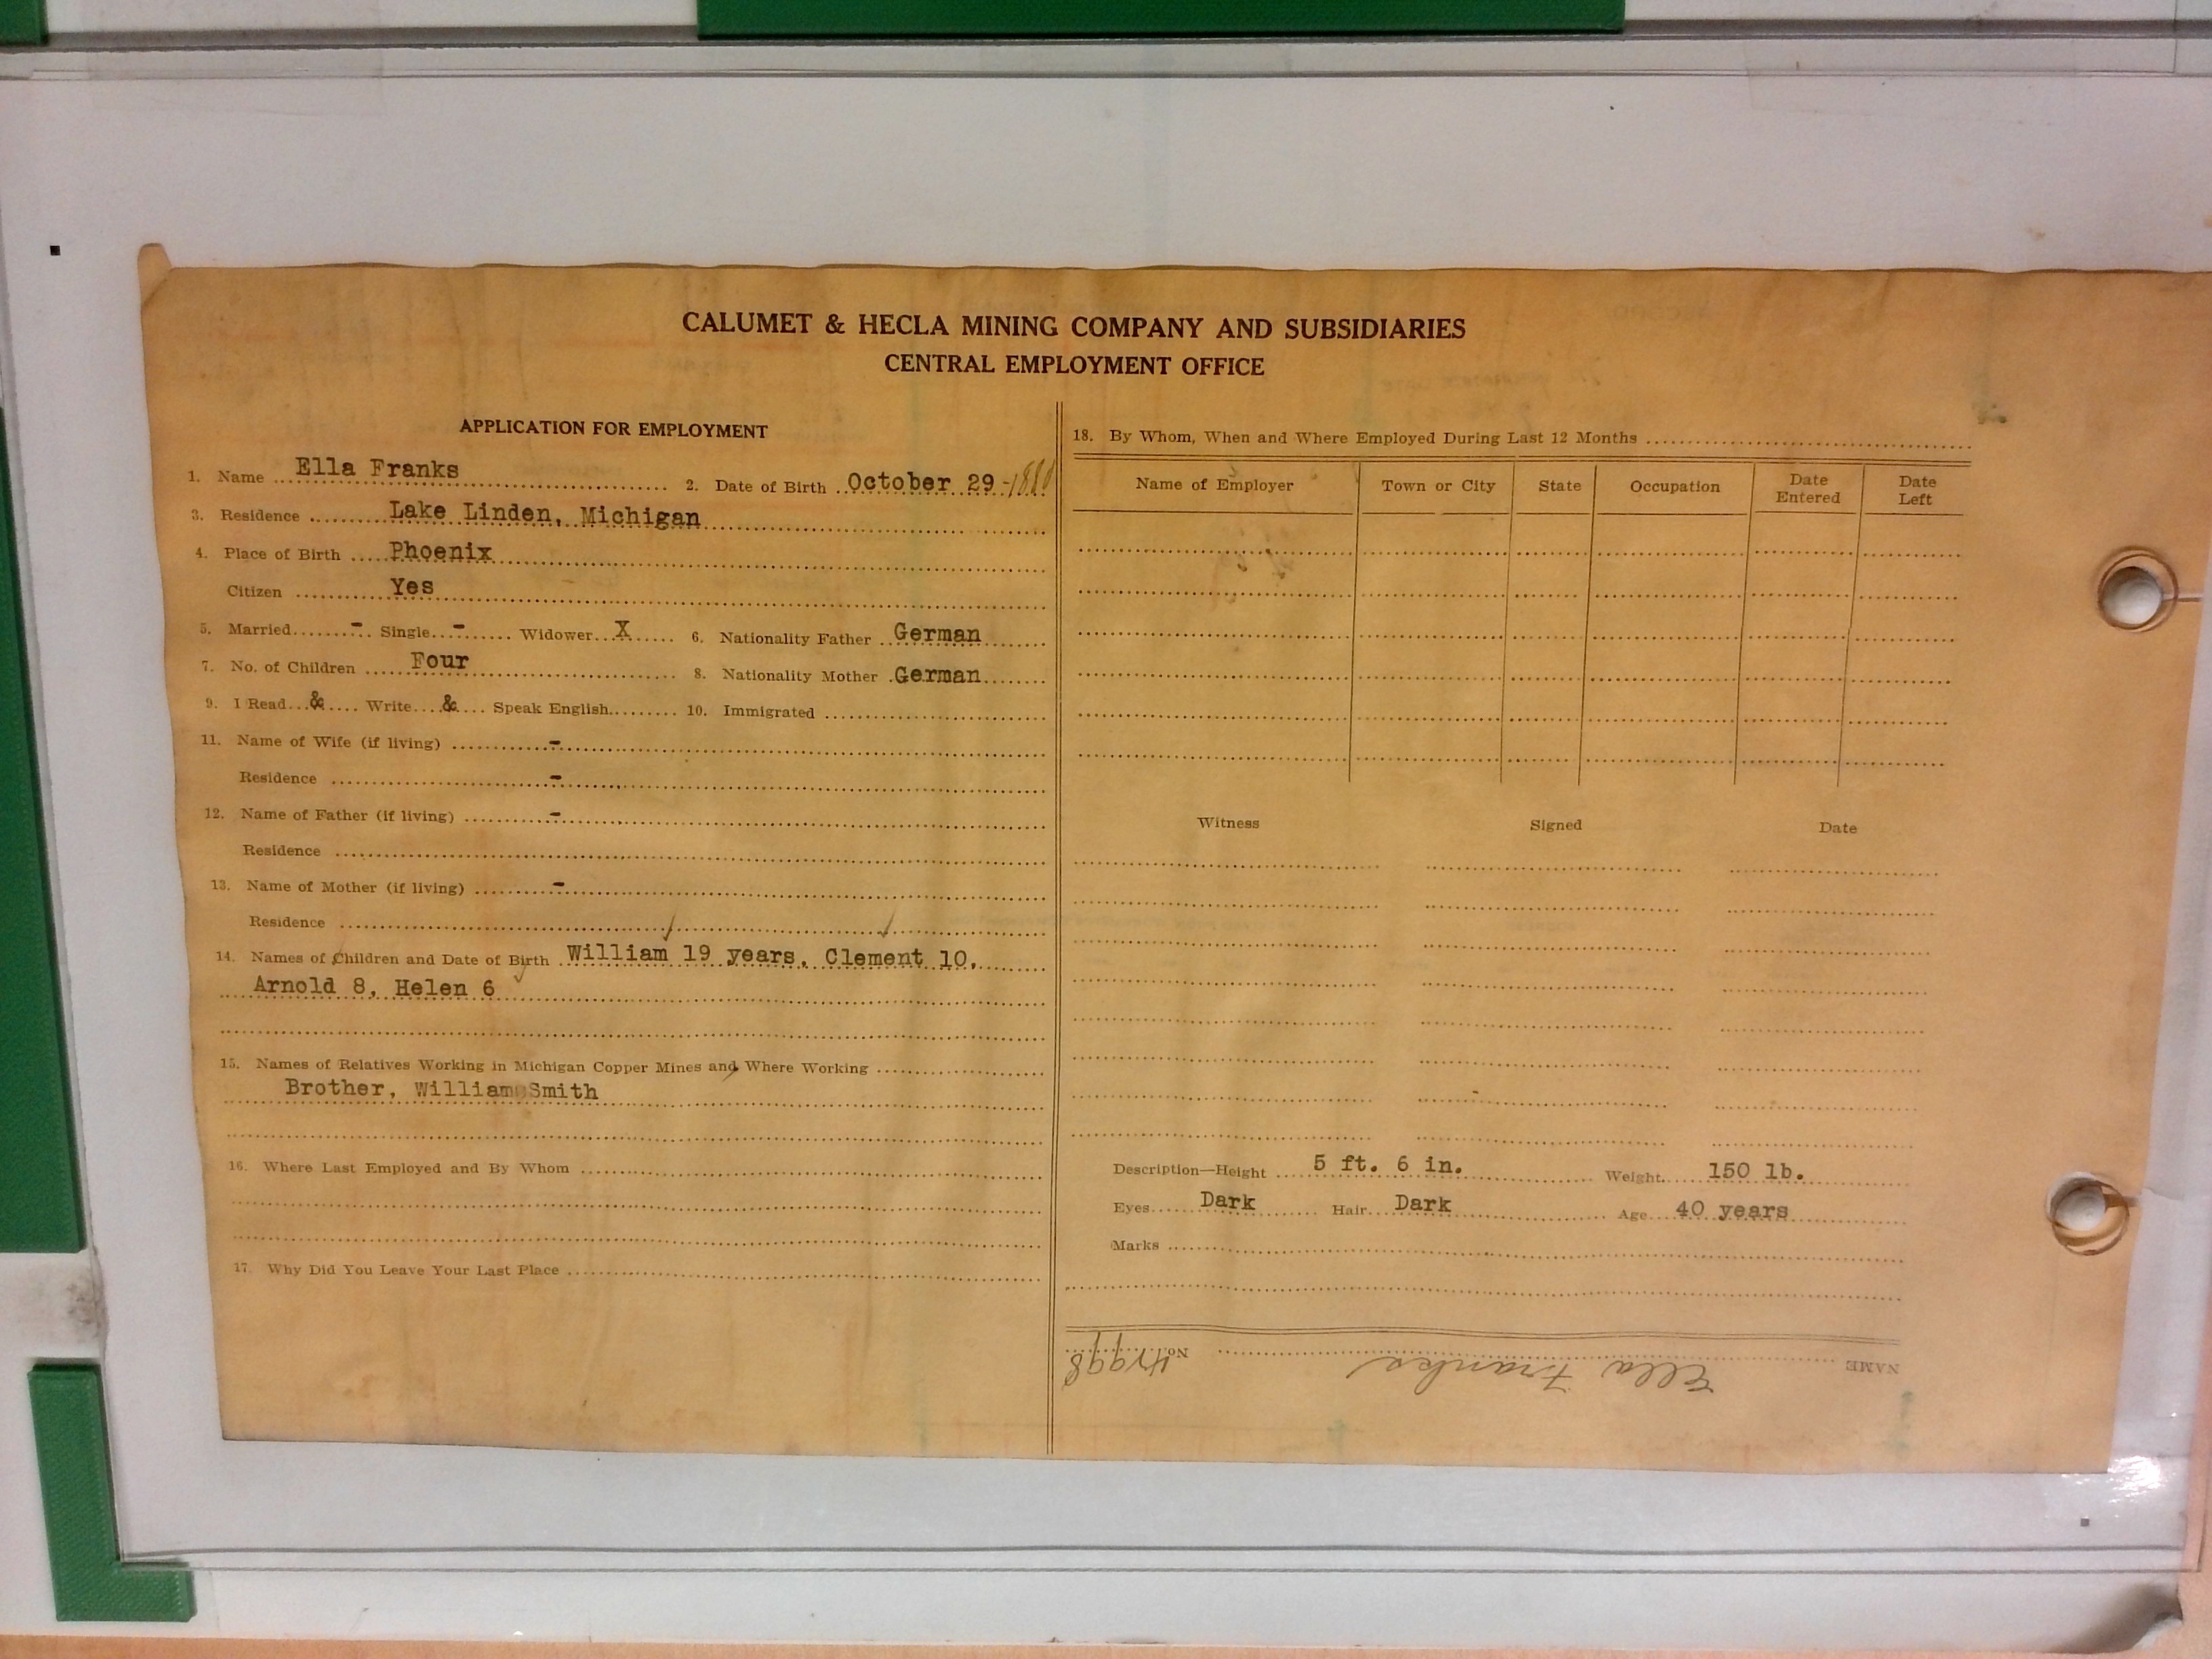 CALUMET & HECLA MINING COMPANY AND SUBSIDIARIES
CENTRAL EMPLOYMENT OFFICE
APPLICATION FOR EMPLOYMENT
1. Name Ella Franks 2. Date of Birth October 29
3. Residence Lake Linden, Michigan
4. Place of Birth Phoenix
Citizen Yes
5. Married - Single - Widower X 6. Nationality Father German
7. No. of Children Four 8. Nationality Mother German
9. I Read & Write & Speak English 10. Immigrated
11. Name of Wife (if living) -
Residence -
12. Name of Father (if living) -
Residence
13. Name of Mother (if living) -
Residence
14. Names of Children and Date of Birth William 19 years, Clement 10,
Arnold 8, Helen 6
15. Names of Relatives Working in Michigan Copper Mines and Where Working
Brother, William Smith
16. Where Last Employed and By Whom
17. Why Did You Leave Your Last Place
18. By Whom, When and Where Employed During Last 12 Months
Name of Employer Town or City State Occupation Date Entered Date Left
Witness Signed Date
Description—Height 5 ft. 6 in. Weight 150 lb.
Eyes Dark Hair Dark Age 40 years
Marks
NAME Ella Franks No.